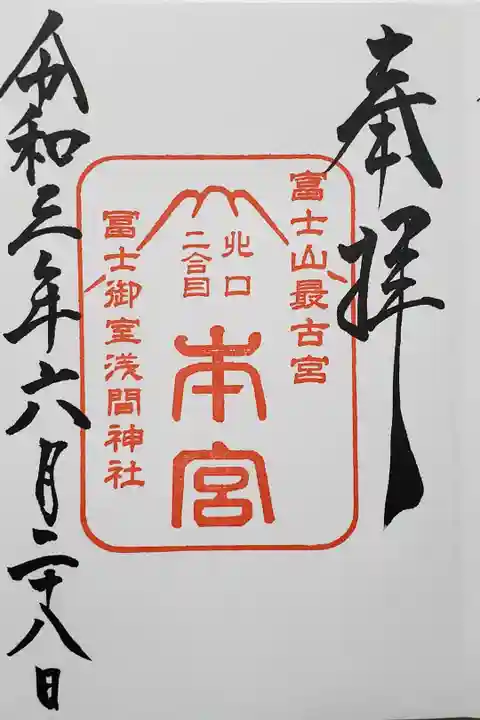 奉拝
富士山最古宮
北口
二合目
本宮
冨士御室浅間神社
令和三年六月二十八日